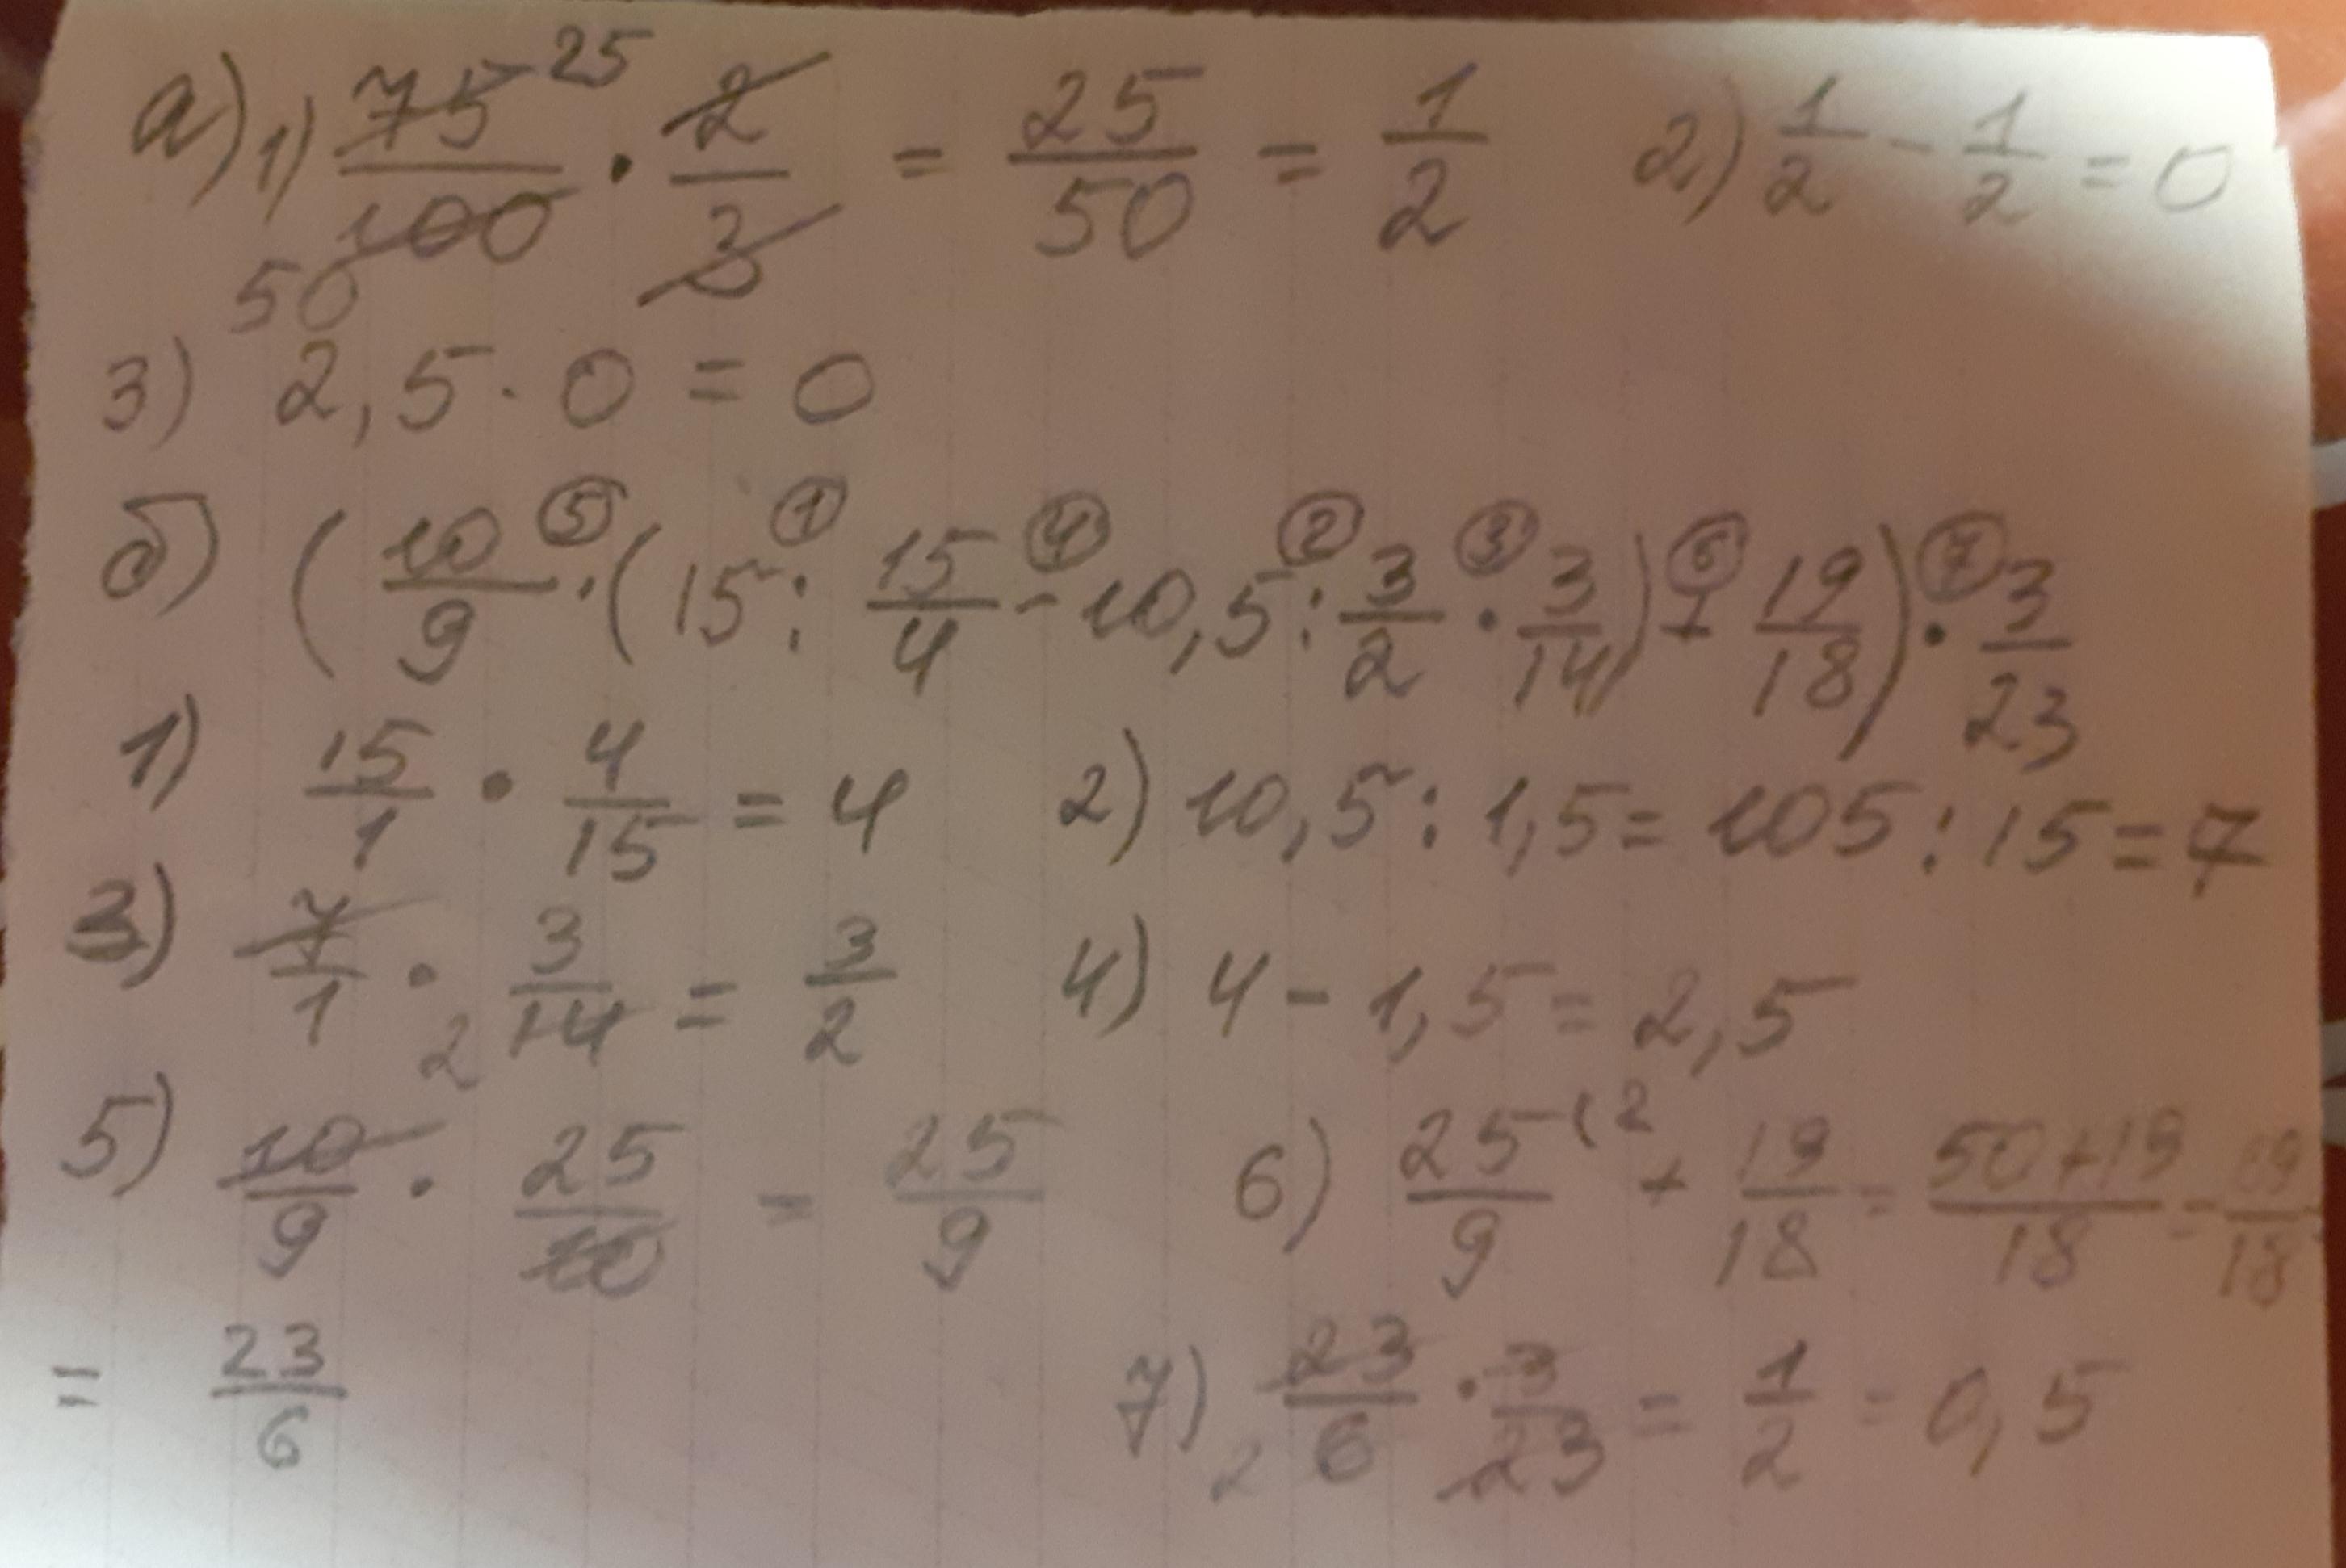 а) 1) 75/100 25 50 · 2/3 = 25/50 = 1/2 2) 1/2 - 1/2 = 0
3) 2,5 · 0 = 0
б) (10/9 ⑤ · (15 ① : 15/4 ④ - 10,5 ② : 3/2 ③ · 3/14) ⑥ + 19/18) ⑦ · 3/23
1) 15/1 · 4/15 = 4 2) 10,5 : 1,5 = 105 : 15 = 7
3) 7/1 · 3/14 2 = 3/2 4) 4 - 1,5 = 2,5
5) 10/9 · 25/10 = 25/9 6) 25/9 (2 + 19/18 = 50+19/18 = /18
= 23/6 7) 23/6 2 · 3/23 = 1/2 = 0,5